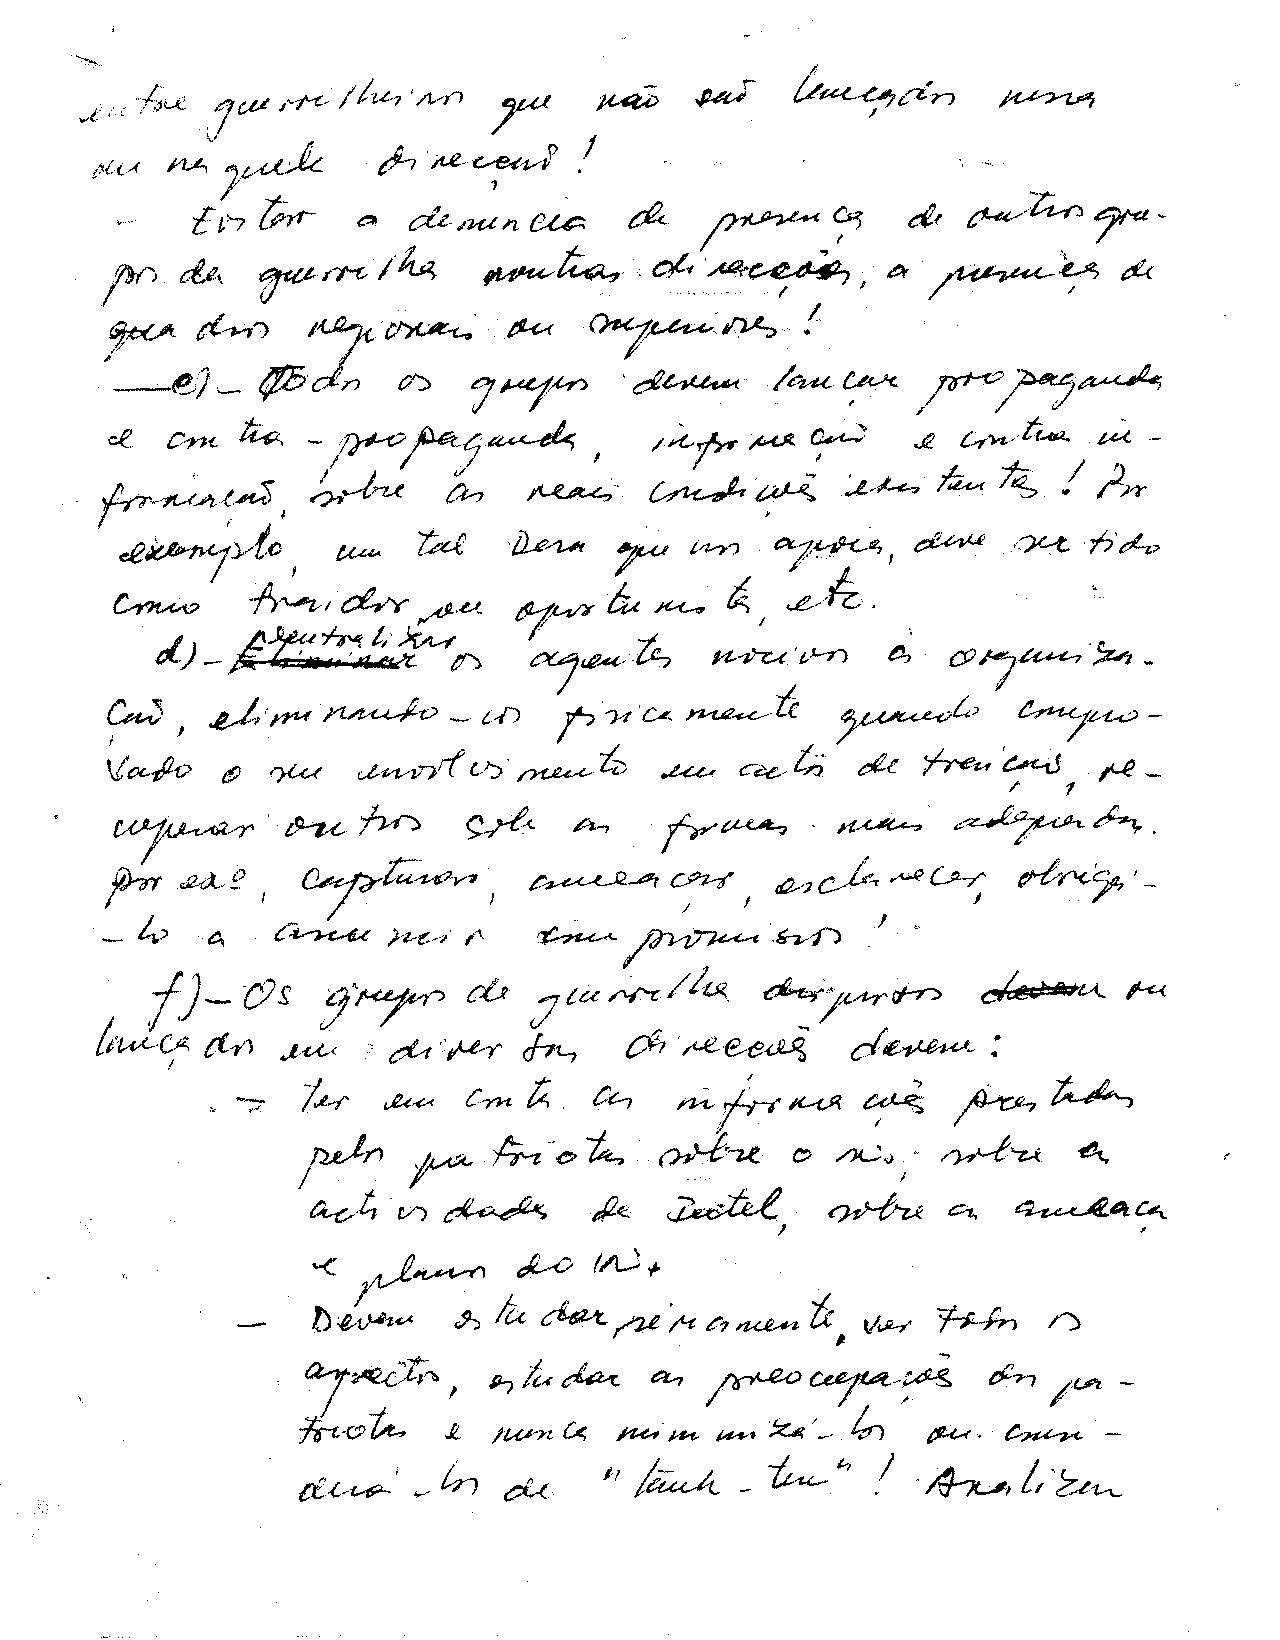 entre guerrilheiros que não são lançados nessa
ou naquela direcção!
- Evitar a denuncia de presença de outros gru-
pos da guerrilha noutras direcções, a presença de
quadros regionais ou superiores!
e)- Todos os grupos devem lançar propaganda
e contra-propaganda, informação e contra in-
formação, sobre as reais condições existentes! Por
exemplo, um tal que nos apoia, deve ser tido
como traidor, ou oportunista, etc.
d)- Neutralizar os agentes nocivos à organiza-
ção, eliminando-os fisicamente quando compro-
vado o seu envolvimento em actos de traição, re-
cuperar outros sob as formas mais adequadas.
Por exº, capturar, ameaçar, esclarecer, obrigá-
-lo a assumir compromissos!
f)- Os grupos de guerrilha dispersos ou
lançados em diversas direcções devem:
- Ter em conta as informações prestadas
pelos patriotas sobre o ini, sobre as
actividades de Intel, sobre a ameaça
e planos do ini.
- Devem estudar seriamente, ver todos os
aspectos, estudar as preocupações dos pa-
triotas e nunca minimizá-los ou consi-
derá-los de " "! Analizem